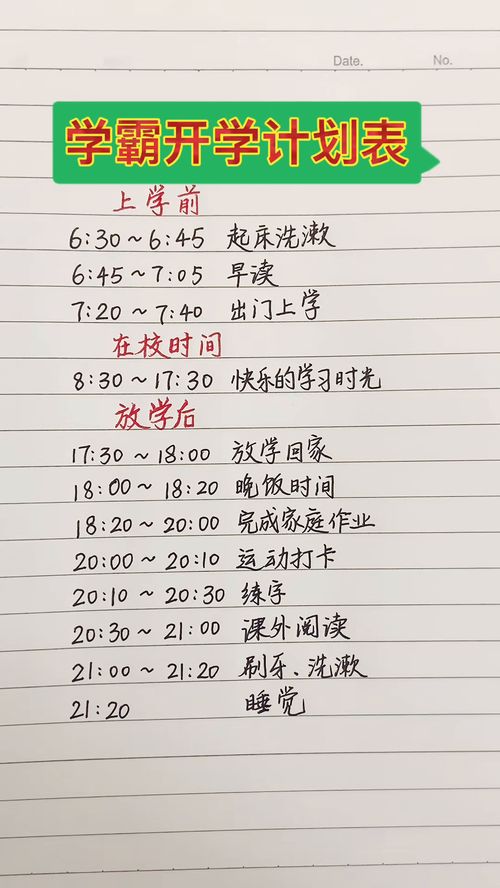 Date.
No.
学霸开学计划表
上学前
6:30~6:45 起床洗漱
6:45~7:05 早读
7:20~7:40 出门上学
在校时间
8:30~17:30 快乐的学习时光
放学后
17:30~18:00 放学回家
18:00~18:20 晚饭时间
18:20~20:00 完成家庭作业
20:00~20:10 运动打卡
20:10~20:30 练字
20:30~21:00 课外阅读
21:00~21:20 刷牙、洗漱
21:20 睡觉